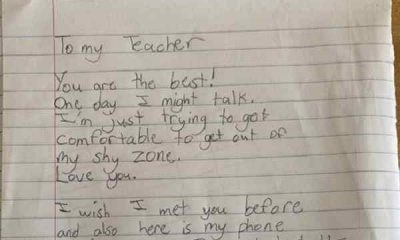 To my Teacher
You are the best!
One day I might talk.
I'm just trying to got
comfortable to get out of
my shy zone.
Love you.
I wish I met you before
and also here is my phone